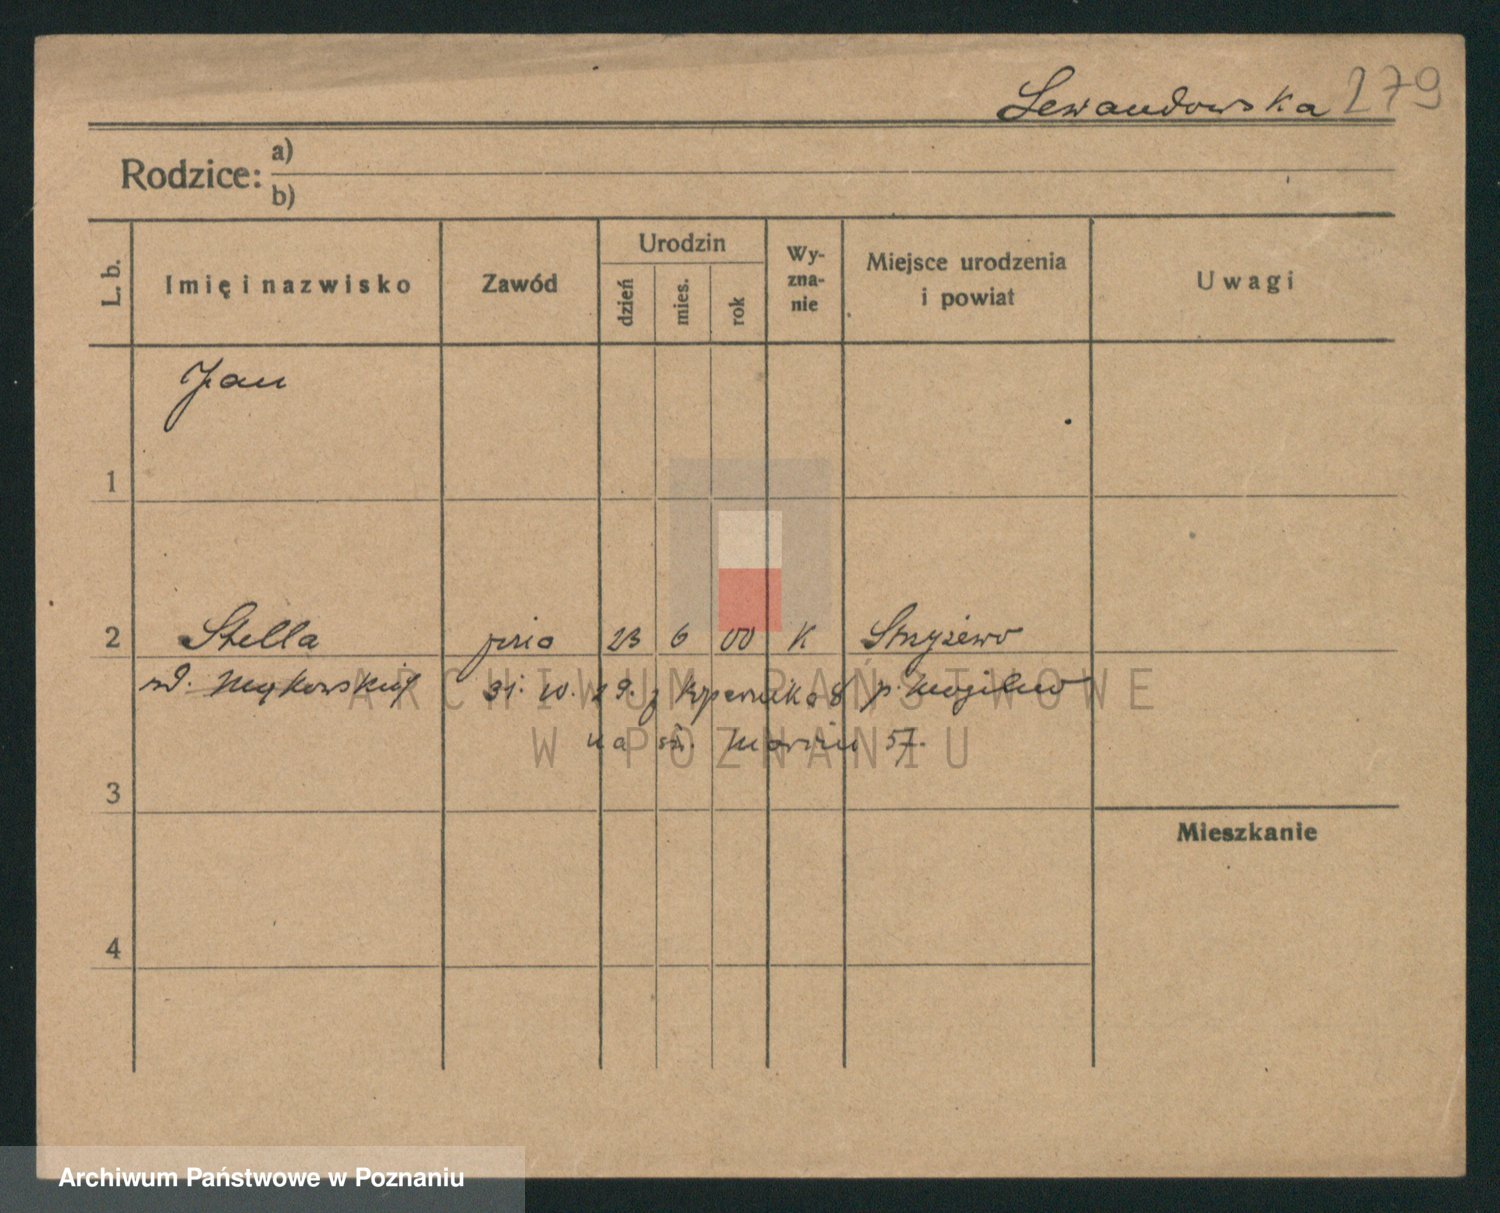 Lewandowska 279
Rodzice: a)
b)
L. b.
Imię i nazwisko
Zawód
Urodzin
dzień
mies.
rok
Wy-
zna-
nie
Miejsce urodzenia
i powiat
Uwagi
Jan
1
2 Stella 23 6 00 K Strzyżewo
31. 10. 29. z Kopernika 8 p. Mogilno
na św. Marcin 57.
3
Mieszkanie
4
ARCHIWUM PAŃSTWOWE
W POZNANIU
Archiwum Państwowe w Poznaniu